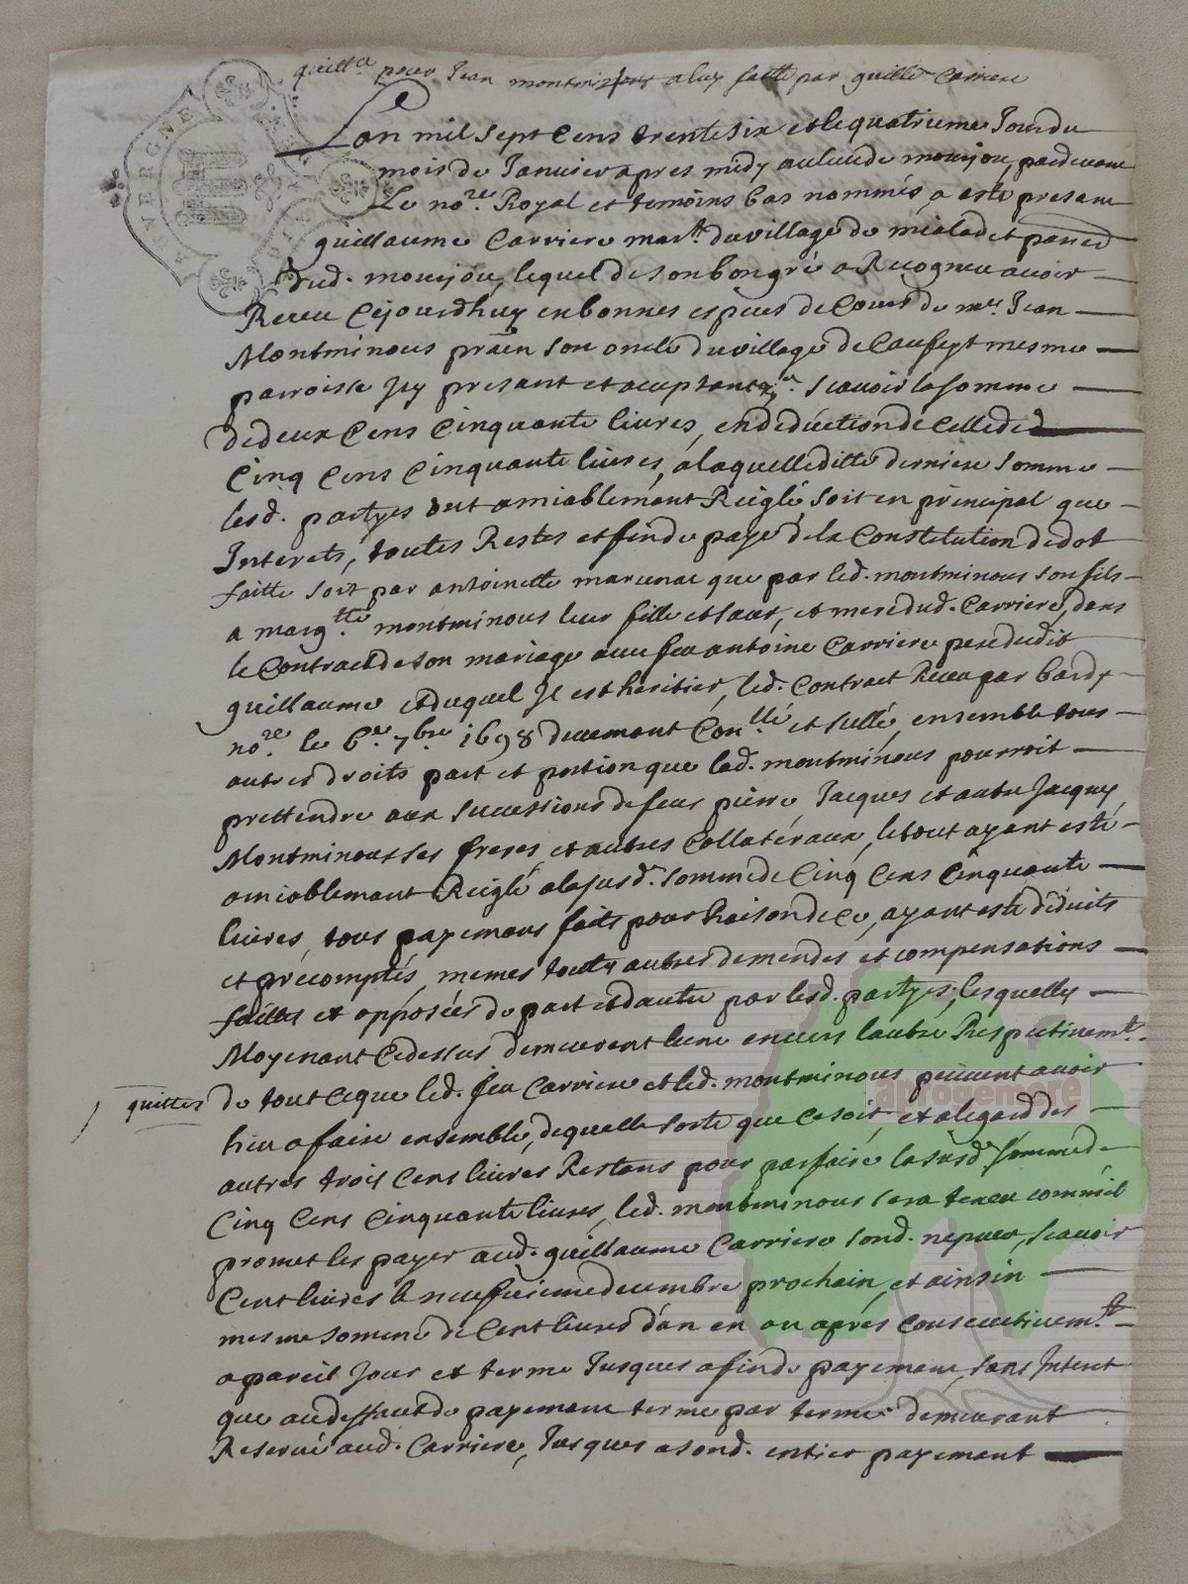 quitt.ce pour Jean montminous a luy faitte par guille Carriere
Lan mil sept Cens trente six et le quatrieme Jour du
mois de Janvier apres midy au lieu de mourjou, pardevant
Le no.re Royal et temoins bas nommés a esté presant
guillaume Carriere mar.t du village de mialad et parr.e
dud. mourjou, lequel de son bon gré a Recognu avoir
Receu Cejourdhuy en bonnes especes de Cours de m.re Jean
Montminous pratn son oncle du village de mesme
parroisse Jcy presant et aceptant, scavoir la somme
de deux Cens Cinquante livres, en deduction de Celle de
Cinq Cens Cinquante livres, a laquelle ditte derniere somme
lesd. partyes ont amiablemant Reiglé, soit en principal que
Interets, toutes Restes et fin de paye de la Constitution de dot
faitte soit par antoinette marcenac que par led. montminous son fils
a marg.tte montminous leur fille et saur, et mere dud. Carriere, dans
le Contract de son mariage avec feu antoine Carriere pere dudit
guillaume et duquel Jl est heritier, led. Contract Receu par bardy
no.re le 6.e 7.bre 1698 deuemant Con.llé et sellé, ensemble tous
autres droits part et portion que led. montminous pourroit
prettendre aux successions de feus pierre, Jacques et autre Jacques
Montminous ses freres, et autres Collatéraux, le tout ayant esté
amiablemant Reiglé a la susd. somme de Cinq Cens Cinquante
livres, tous payemans faits pour Raison de Ce, ayant esté déduits
et précomptés, memes toutes autres demendes et compensations
faittes et oppósées de part et dautre par lesd. partyes, lesquelles
Moyenant Cedessus demeurent lune envers lautre Respectivem.t
quittes de tout Ceque led. feu Carriere et led. montminous peuvent avoir
heu a faire ensemble, de quelle sorte que Ce soit, et a legard des
autres trois Cens livres Restans pour parfaire la susd. somme de
Cinq Cens Cinquante livres, led. montminous sera tenu comme il
promet les payer aud. guillaume Carriere sond. nepveu, scavoir
Cent livres le neufvieme decembre prochain, et ainsin
mesme somme de Cent livres dán en an aprés Consecutivem.t
a pareil Jour et terme Jusques a fin de payemant, sans Interet
que au deffaut de payemant terme par terme demeurant
Reservé aud. Carriere, Jusques a sond. entier payement
AUVERGNE
aprogemere